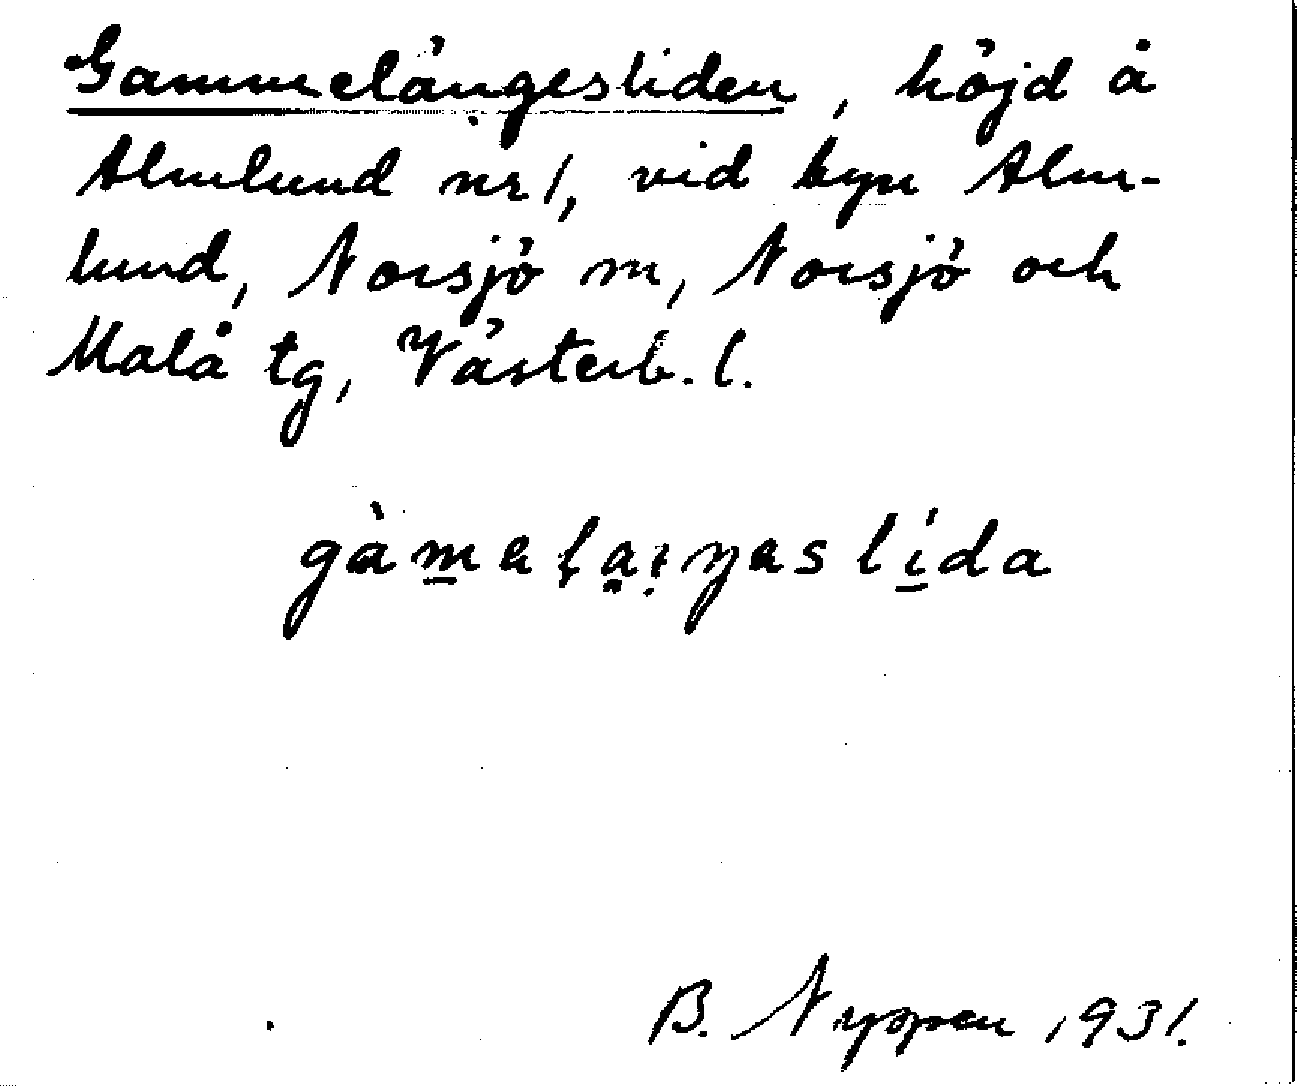 Gammelängesliden, höjd å
Almlund nr 1, vid byn Alm-
lund, Norsjö sn, Norsjö och
Malå tg, Västerb. l.
gàm̲eḷa̤i̤ŋes lí̲da
B. Nyppen 1931.